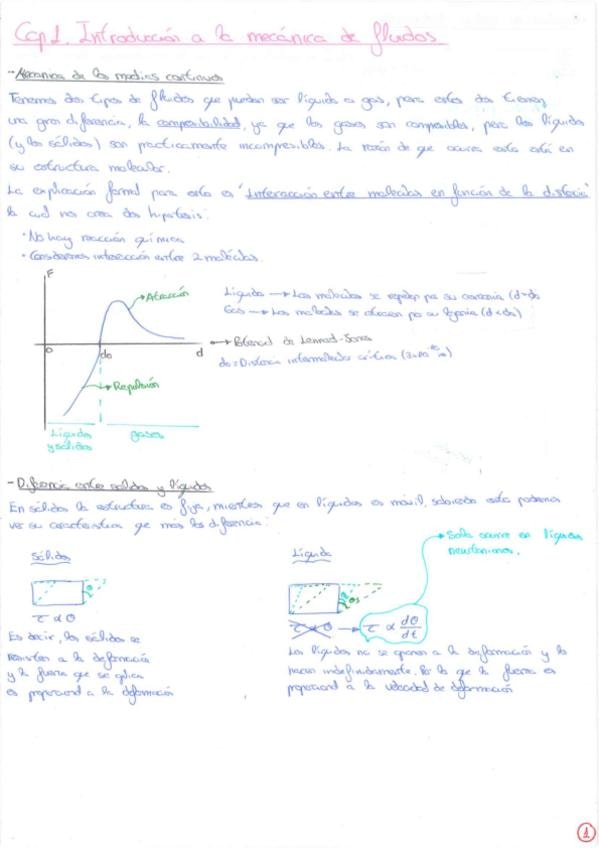 Cap 1. Introducción a la mecánica de fluidos
- Mecánica de los medios continuos
Tenemos dos tipos de fluidos que pueden ser líquido o gas, pero estos dos tienen
una gran diferencia, la compresibilidad, ya que los gases son compresibles, pero los líquidos
(y los sólidos) son practicamente incompresibles. La razón de que ocurra esto está en
su estructura molecular.
La explicación formal para esto es "Interacción entre moléculas en función de la distancia"
la cual nos crea dos hipotesis:
· No hay reacción química
· Consideramos interacción entre 2 moléculas.
F
Atracción
Líquido → Las moléculas se repelen por su cercanía (d
Gas → Las moléculas se atraen por su lejanía (d < do)
0
do
d
Potencial de Lennard-Jones
do = Distancia intermolecular crítica
Repulsión
Líquidos
y sólidos
gases
- Diferencia entre sólidos y líquidos
En sólidos la estructura es fija, mientras que en líquidos es móvil, sabiendo esto podemos
ver su característica que más los diferencia:
Solo ocurre en líquidos
newtonianos.
Sólido
Líquido
θ
θ
τ α θ
τ α θ → τ α dθ/dt
Es decir, los sólidos se
resisten a la deformación
y la fuerza que se aplica
es proporcional a la deformación
Los líquidos no se oponen a la deformación y lo
hacen indefinidamente. Por lo que la fuerza es
proporcional a la velocidad de deformación
1